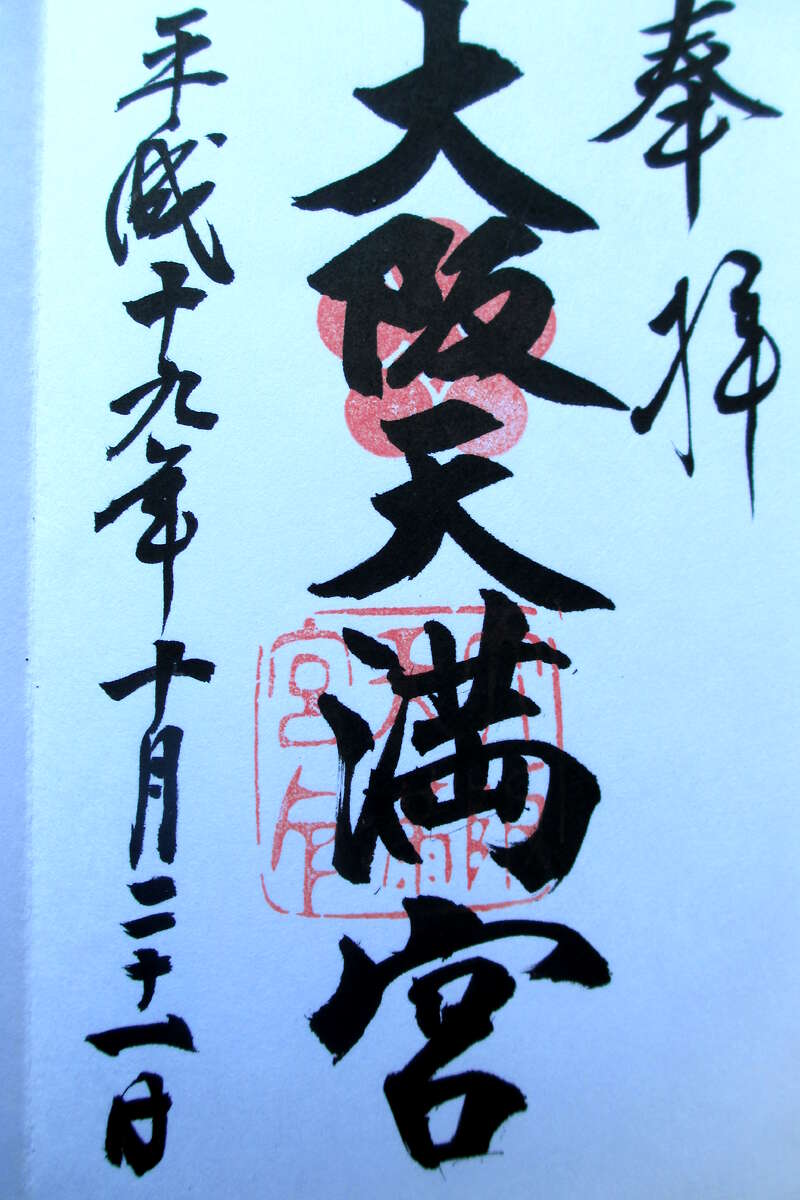 奉拝
大阪天満宮
平成十九年十月二十一日